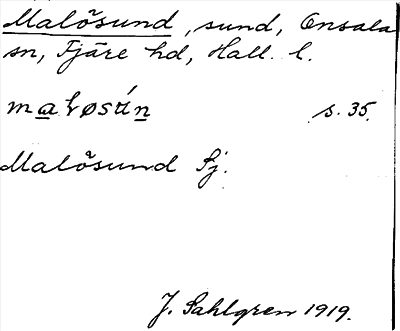 Malösund, sund, Onsala
sn, Fjäre hd, Hall. l.
maløsún s. 35.
Malösund Sj.
J. Sahlgren 1919.